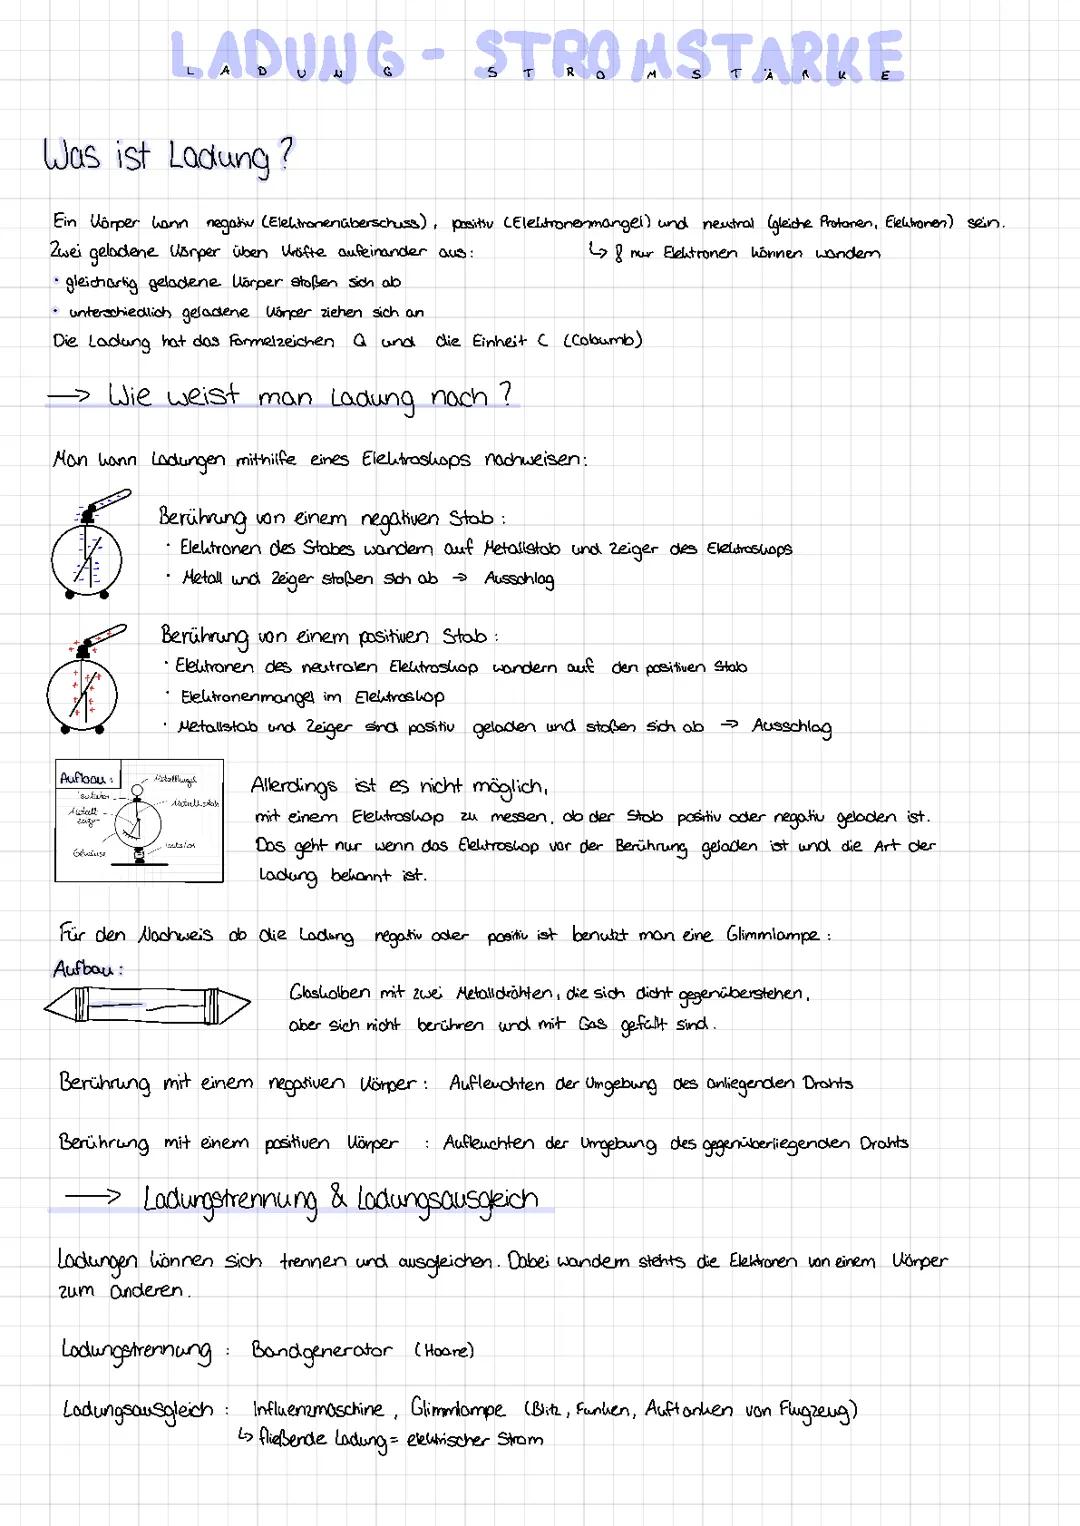 LADUNG - STROMSTÄRKE
LADUNG STROMSTÄRKE
Was ist Ladung?
Ein Körper kann negativ (Elektronenüberschuss), positiv (Elektronenmangel) und neutral (gleiche Protonen, Elektronen) sein.
Zwei geladene Körper üben Kräfte aufeinander aus: ↳ ! nur Elektronen können wandern
• gleichartig geladene Körper stoßen sich ab
• unterschiedlich geladene Körper ziehen sich an
Die Ladung hat das Formelzeichen Q und die Einheit C (Coloumb)
→ Wie weist man Ladung nach?
Man kann Ladungen mithilfe eines Elektroskops nachweisen:
Berührung von einem negativen Stab:
• Elektronen des Stabes wandern auf Metallstab und Zeiger des Elektroskops
• Metall und Zeiger stoßen sich ab → Ausschlag
Berührung von einem positiven Stab:
• Elektronen des neutralen Elektroskop wandern auf den positiven Stab
• Elektronenmangel im Elektroskop
• Metallstab und Zeiger sind positiv geladen und stoßen sich ab → Ausschlag
Aufbau:
Metallkugel
Isolator
Metallstab
Metall
zeiger
Gehäuse
Isolator
Allerdings ist es nicht möglich,
mit einem Elektroskop zu messen, ob der Stab positiv oder negativ geladen ist.
Das geht nur wenn das Elektroskop vor der Berührung geladen ist und die Art der
Ladung bekannt ist.
Für den Nachweis ob die Ladung negativ oder positiv ist benutzt man eine Glimmlampe:
Aufbau:
Glaskolben mit zwei Metalldrähten, die sich dicht gegenüberstehen,
aber sich nicht berühren und mit Gas gefüllt sind.
Berührung mit einem negativen Körper: Aufleuchten der Umgebung des anliegenden Drahts
Berührung mit einem positiven Körper : Aufleuchten der Umgebung des gegenüberliegenden Drahts
→ Ladungstrennung & Ladungsausgleich
Ladungen können sich trennen und ausgleichen. Dabei wandern stehts die Elektronen von einem Körper
zum anderen.
Ladungstrennung : Bandgenerator (Haare)
Ladungsausgleich : Influenzmaschine, Glimmlampe (Blitz, Funken, Auftanken von Flugzeug)
↳ fließende Ladung = elektrischer Strom